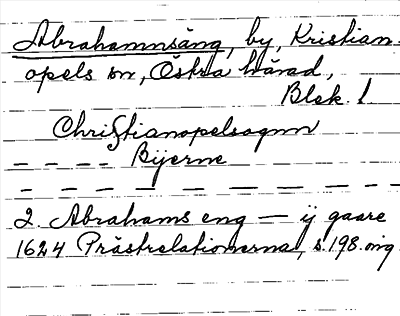 Abrahamnsäng, by, Kristian-
opels sn, Östra härad,
Blek. l
Christianopelsognn
– – – – Bijerne
– – – – – – – – – –
2. Abrahams eng — ij gaare
1624 Prästrelationerna, s. 198. orig.